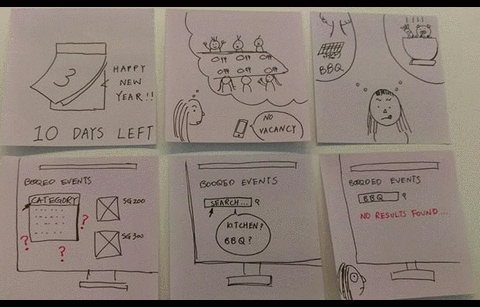 3
HAPPY
NEW
YEAR!!
10 DAYS LEFT
NO
VACANCY
BBQ
BOOQED EVENTS
CATEGORY
SG 200
? ? ?
SG 300
BOOQED EVENTS
SEARCH... ?
KITCHEN?
BBQ?
BOOQED EVENTS
BBQ ?
NO RESULTS FOUND...